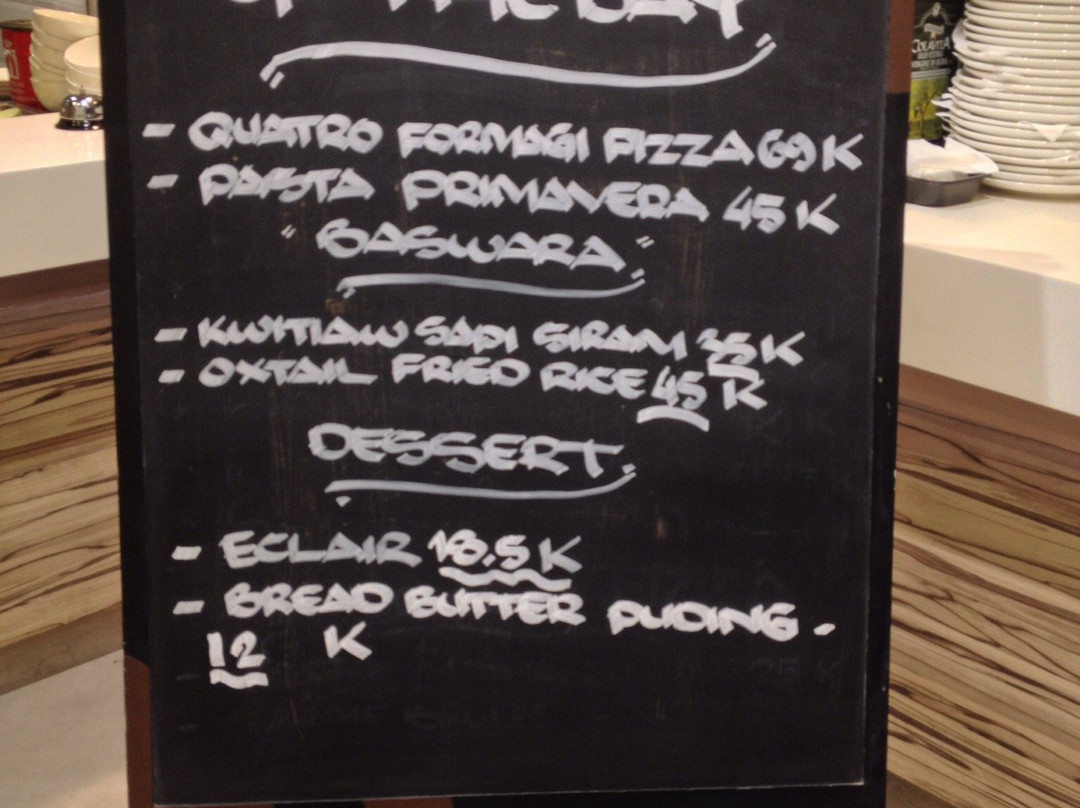 OF THE DAY
- QUATTRO FORMAGI PIZZA 69 K
- PASTA PRIMAVERA 45 K
"BASWARA"
- KWITIAW SAPI SIRAM 35 K
- OXTAIL FRIED RICE 45 K
DESSERT.
- ECLAIR 18.5 K
- BREAD BUTTER PUDING -
12 K
COLAVITA